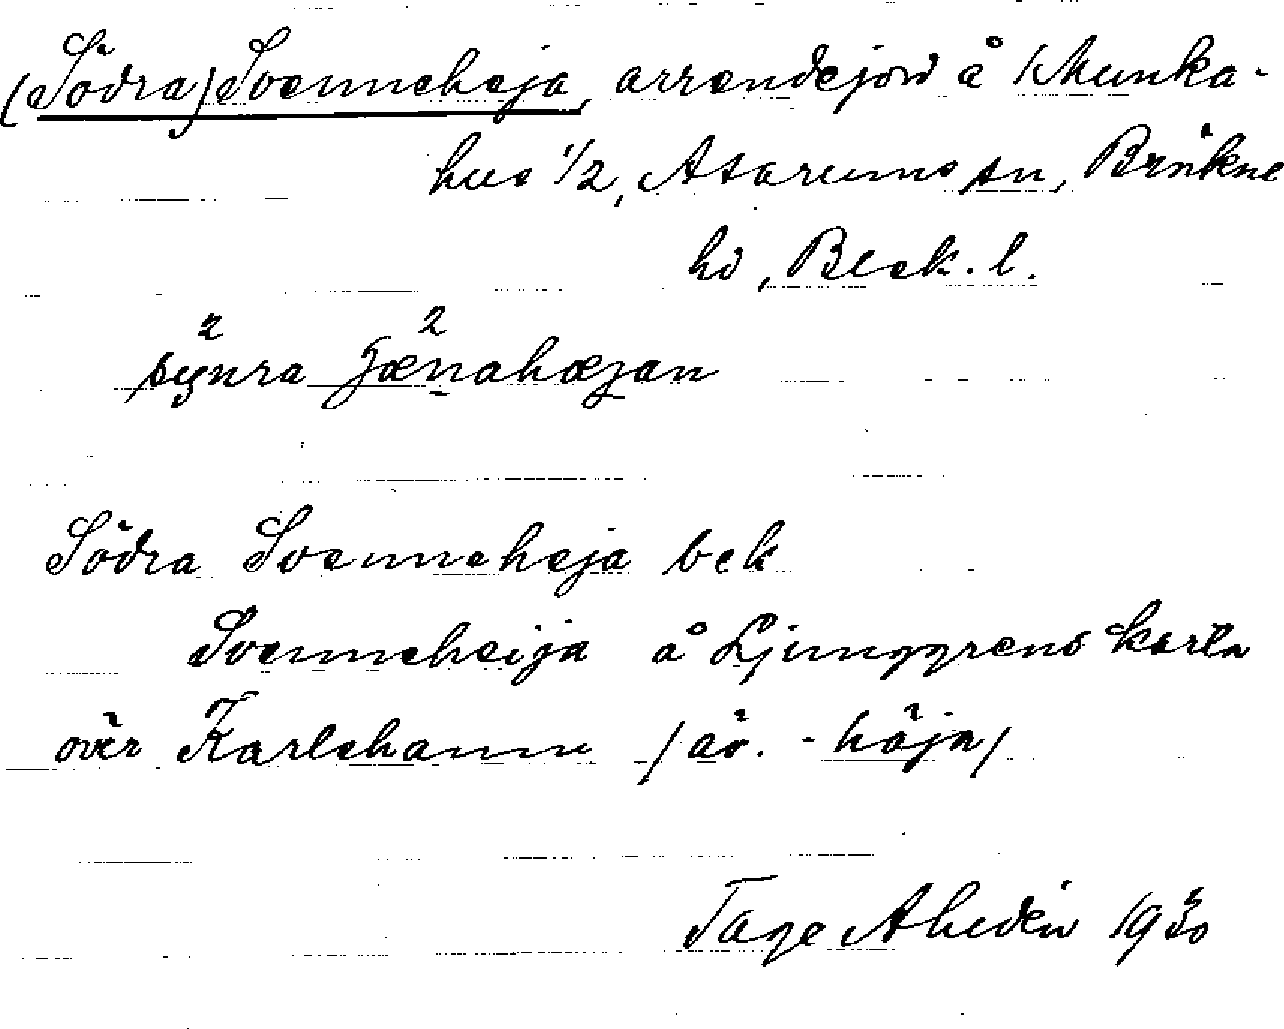 (Södra) Svenneheja, arrendejord å Munka-
hus 1/2, Asarums sn, Bräkne
hd, Blek. l.
2 2
Södra Svenneheja bek
Svenneheija å Ljunggrens karta
över Karlshamn /äv. -höja/
Tage Ahldén 1930